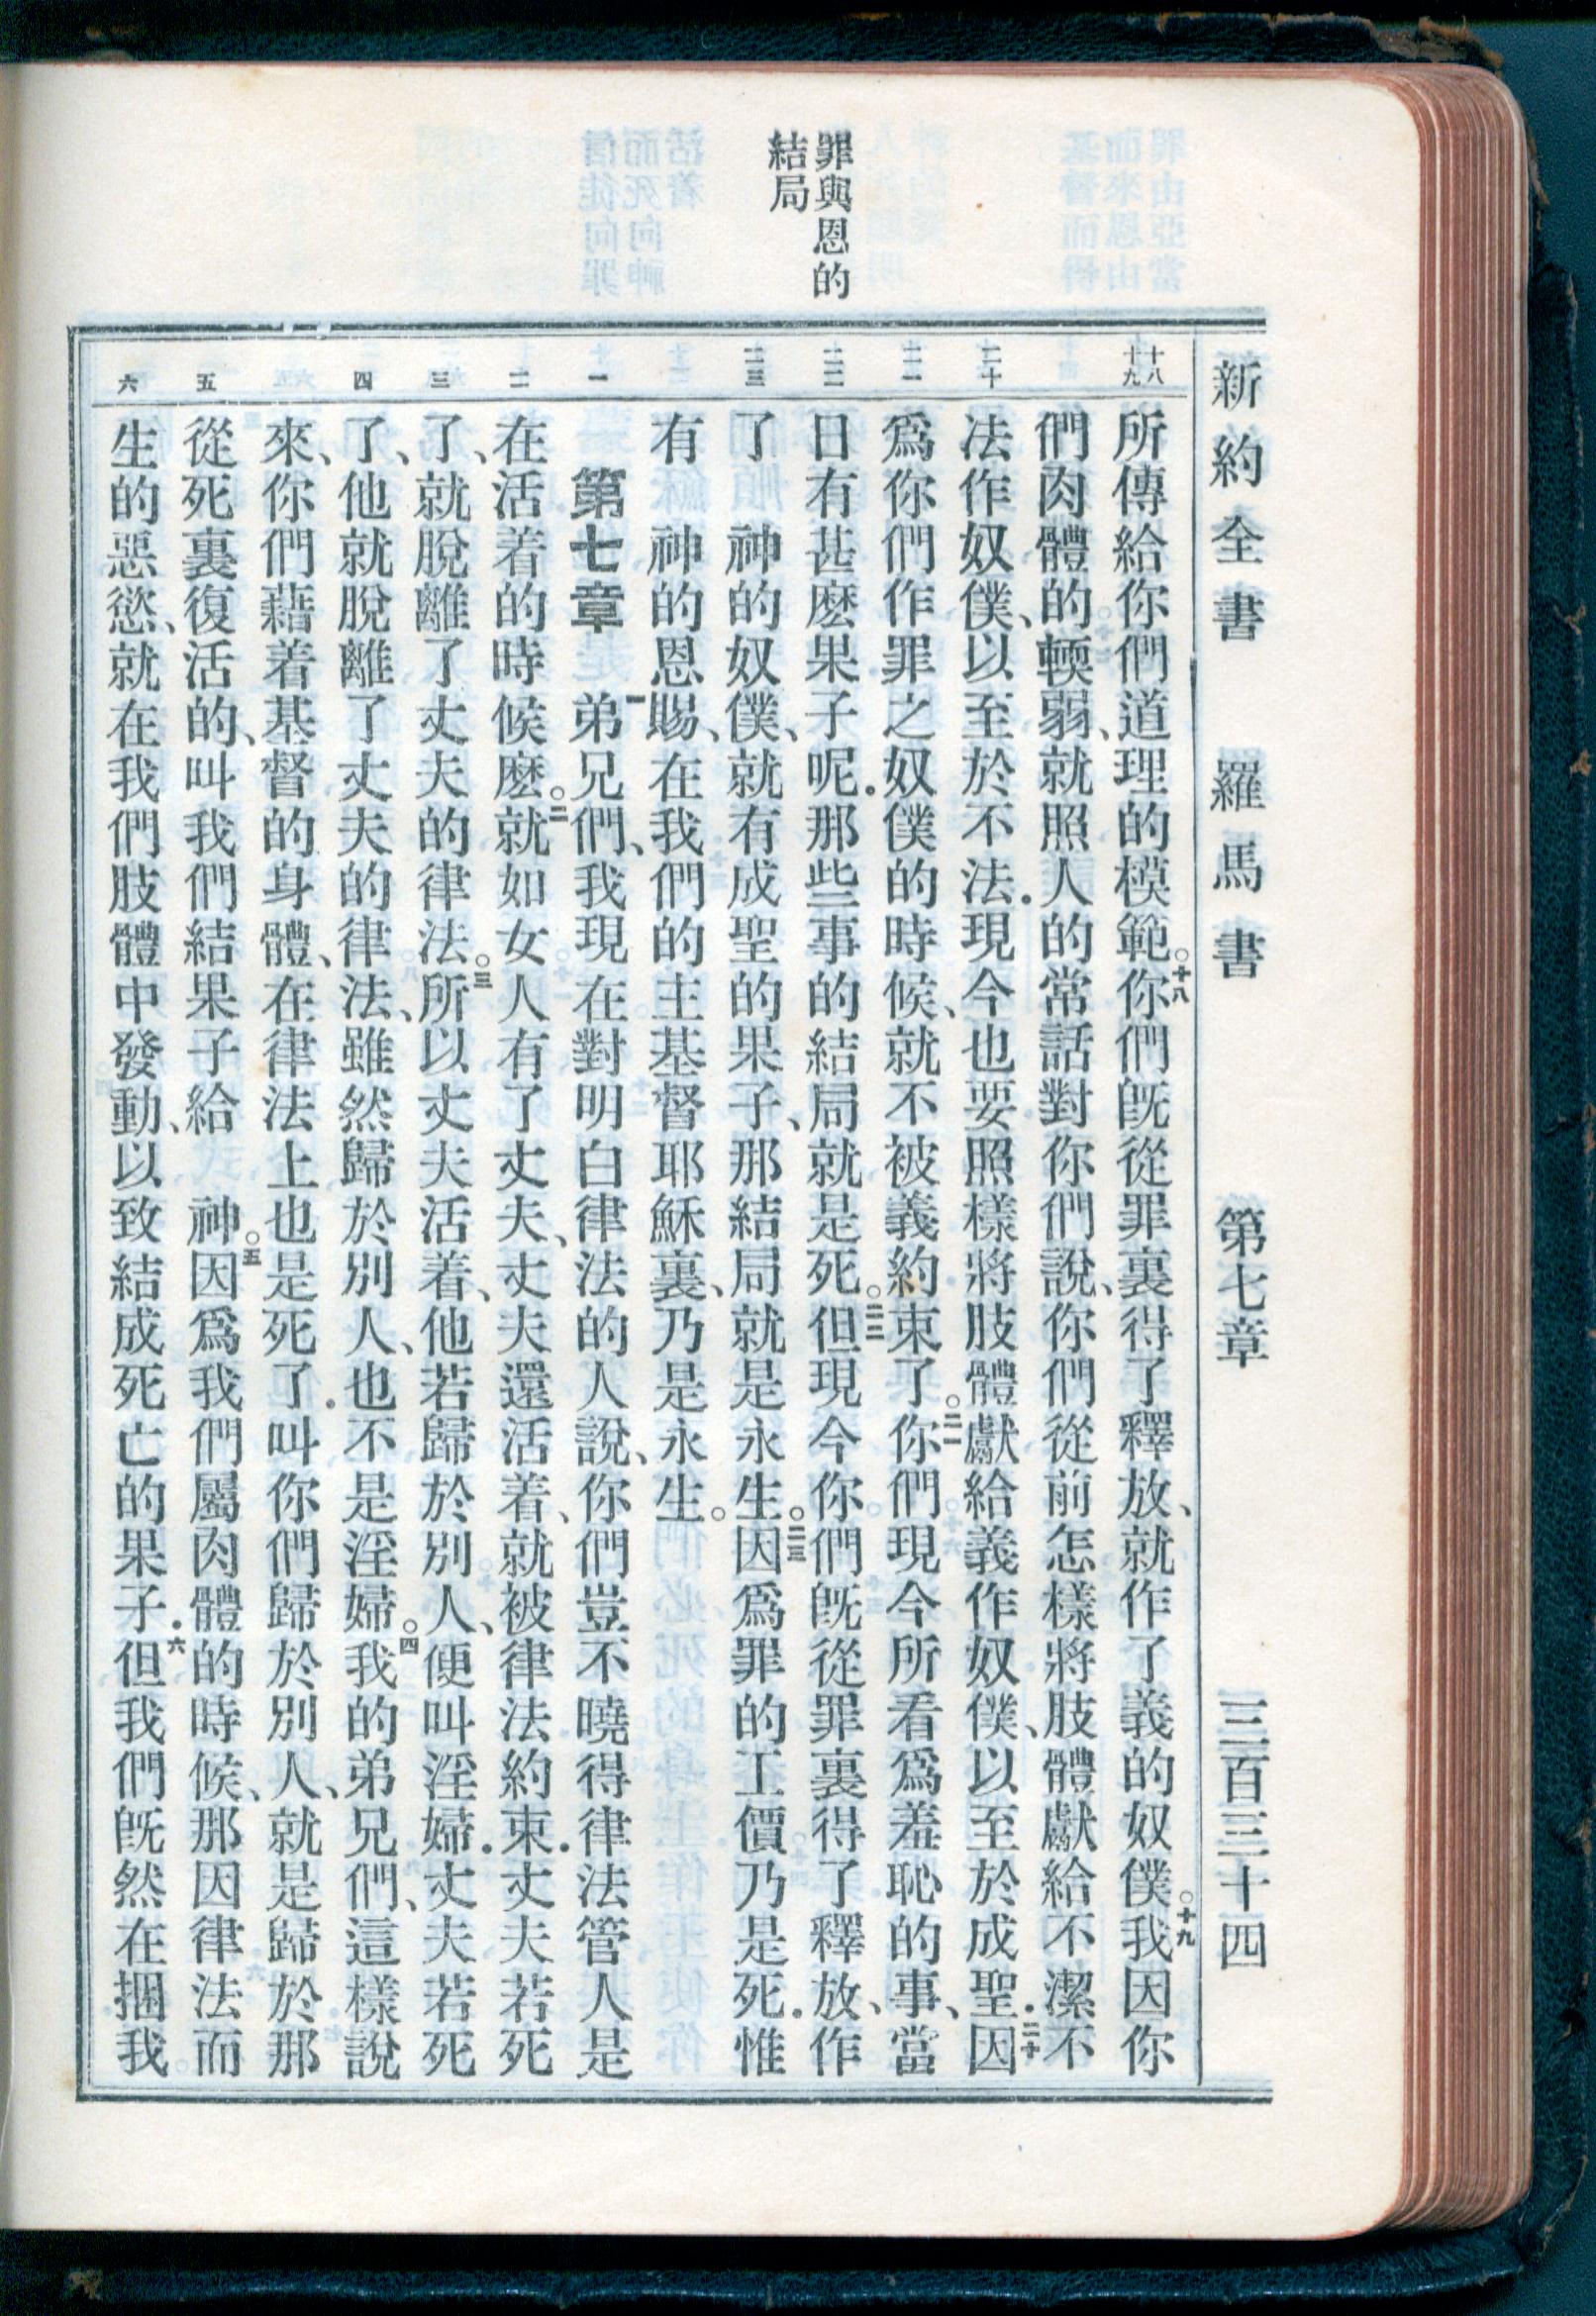 罪與恩的
結局
新約全書 羅馬書 第七章 三百三十四
十八
十九
二十
二一
二二
二三
一
二
三
四
五
六
所傳給你們道理的模範。十八你們旣從罪裏得了釋放、就作了義的奴僕。十九我因你
們肉體的輭弱、就照人的常話對你們說、你們從前怎樣將肢體獻給不潔不
法作奴僕、以至於不法．現今也要照樣將肢體獻給義作奴僕、以至於成聖．二十因
爲你們作罪之奴僕的時候、就不被義約束了。二一你們現今所看爲羞恥的事、當
日有甚麽果子呢．那些事的結局就是死。二二但現今你們旣從罪裏得了釋放、作
了 神的奴僕、就有成聖的果子、那結局就是永生。二三因爲罪的工價乃是死．惟
有 神的恩賜、在我們的主基督耶穌裏、乃是永生。
第七章 一弟兄們、我現在對明白律法的人說、你們豈不曉得律法管人是
在活着的時候麽。二就如女人有了丈夫、丈夫還活着、就被律法約束．丈夫若死
了、就脫離了丈夫的律法。三所以丈夫活着、他若歸於別人、便叫淫婦．丈夫若死
了、他就脫離了丈夫的律法、雖然歸於別人、也不是淫婦。四我的弟兄們、這樣說
來、你們藉着基督的身體、在律法上也是死了．叫你們歸於別人、就是歸於那
從死裏復活的、叫我們結果子給 神。五因爲我們屬肉體的時候、那因律法而
生的惡慾、就在我們肢體中發動、以致結成死亡的果子．六但我們旣然在捆我